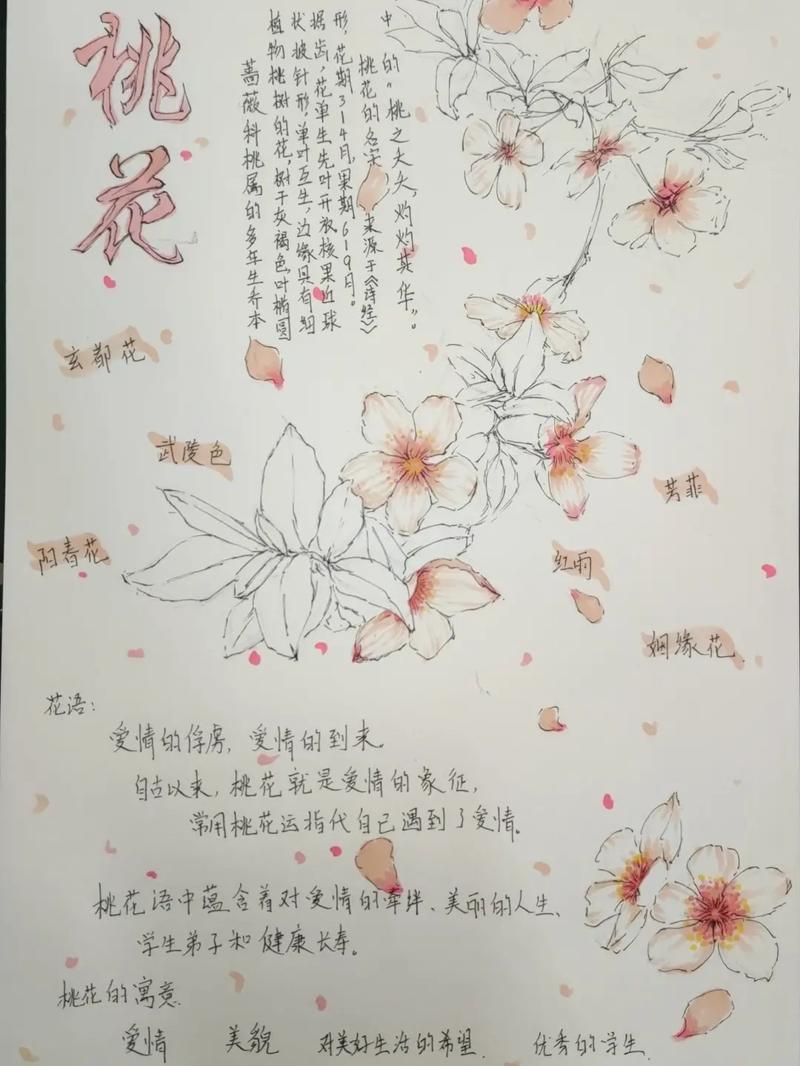 桃花
蔷薇科桃属的多年生乔本
植物桃树的花,树干灰褐色,叶椭圆
状披针形,单叶互生,边缘具有细
据齿,花单生先叶开放核果近球
形,花期3-4月,果期6-9月。
桃花的名字来源于《诗经》
中的“桃之夭夭,灼灼其华”。
玄都花
武陵色
阳春花
芳菲
红雨
姻缘花
花语:
爱情的俘虏,爱情的到来。
自古以来,桃花就是爱情的象征,
常用桃花运指代自己遇到了爱情。
桃花语中蕴含着对爱情的牵绊、美丽的人生、
学生弟子和健康长寿。
桃花的寓意.
爱情 美貌 对美好生活的希望. 优秀的学生.